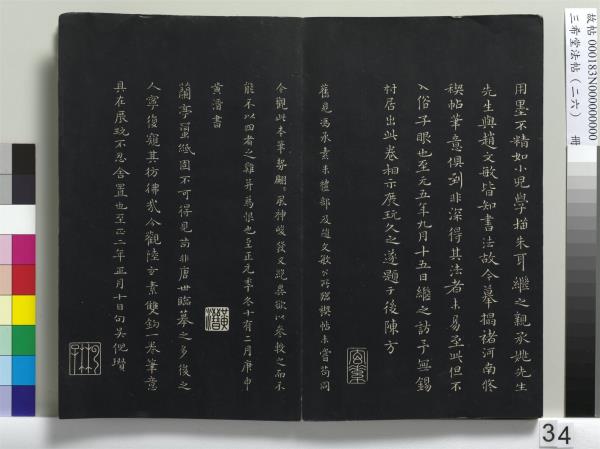 用墨不精如小兒學描朱耳繼之親承姚先生
先生與趙文敏皆知書法故今摹搨褚河南臨
稧帖筆意俱到非深得其法者未易至此但不
入俗子眼也至元五年九月十五日繼之訪予無錫
村居出此卷相示展玩久之遂題于後陳方
舊見馮承素朱禮部及趙文敏公所臨稧帖未嘗苟同
今觀此本筆勢翩翩風神峻發又規異欲以參較之而不
能不以四者之難并為恨也至正元季冬十有二月庚申
黃溍書
蘭亭蠒紙固不可得見苟非唐世臨摹之多後之
人寧復窺其彷彿哉今觀陸玄素雙鉤一卷筆意
具在展玩不忍舍置也至正二年正月十日句吳倪瓚
黃溍
故帖 000183N000000000
三希堂法帖（二六） 冊
34